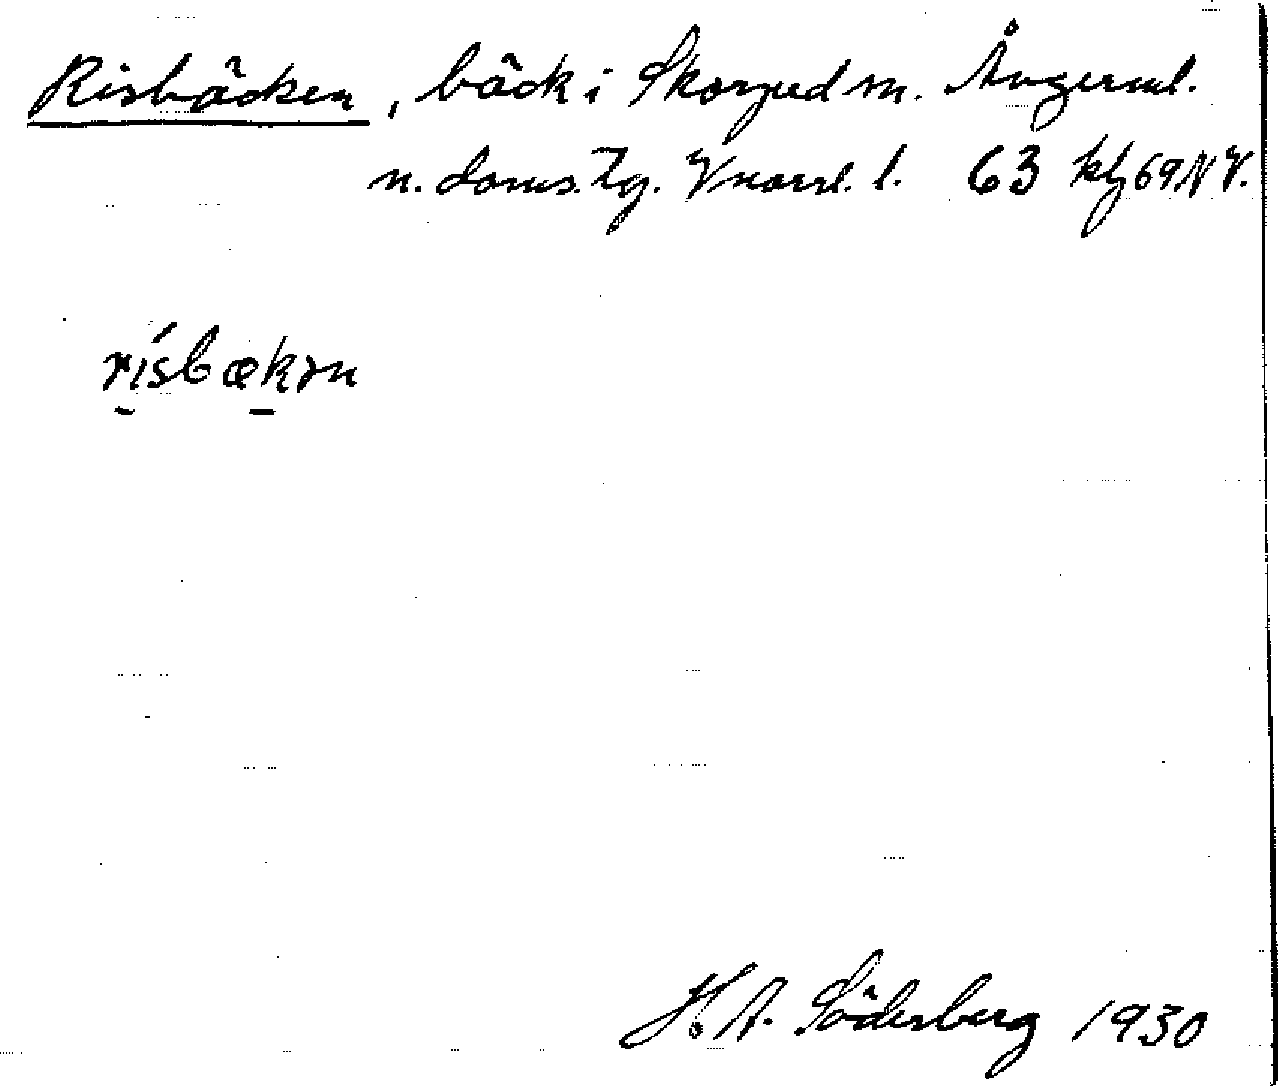 Risbäcken, bäck i Skorped sn. Ångerml.
n. doms. Tg. Vnorrl. l. 63 kbl 69 NV.
rísbækən
H. A. Söderberg 1930